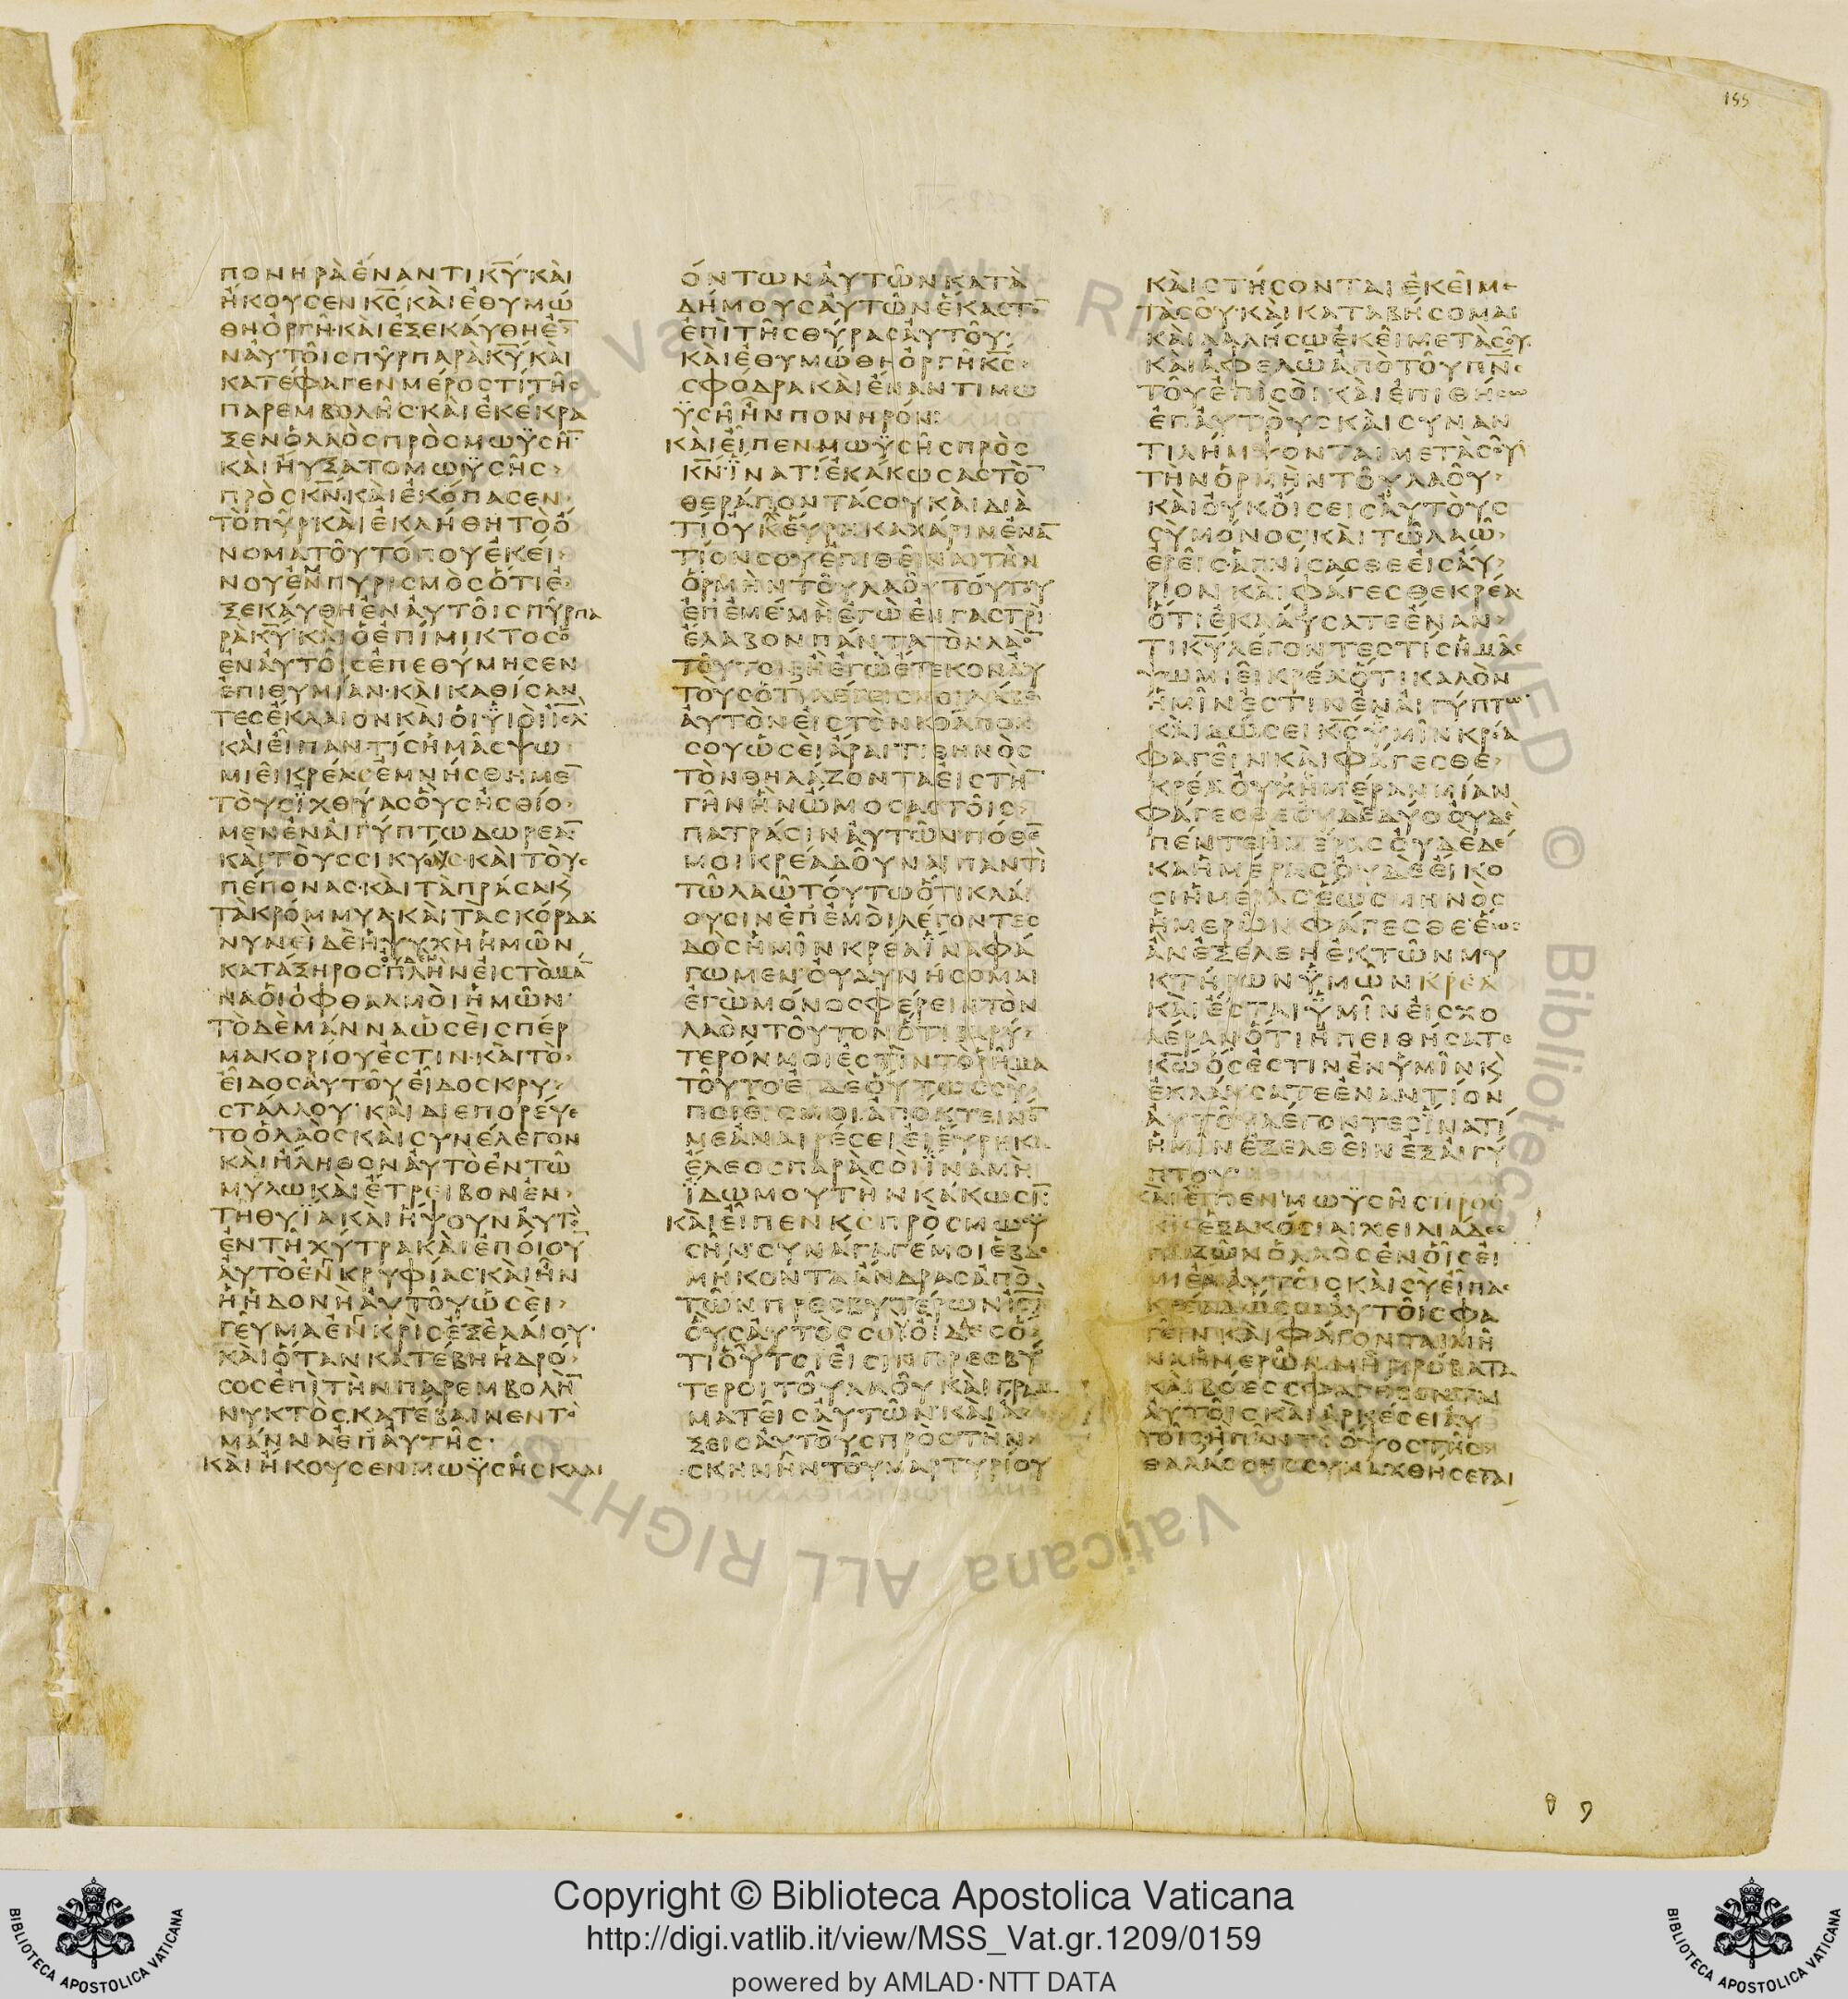 155
ΠΟΝΗΡᾺ ἘΝΑΝΤΙ Κ̅Υ̅· ΚΑῚ
ἨΚΟΥΣΕΝ Κ̅Σ̅ ΚΑῚ ἘΘΥΜΏ
ΘΗ ὈΡΓΗ͂· ΚΑῚ ἘΞΕΚΑΎΘΗ Ἐ
Ν ΑΥΤΟΙ͂Σ ΠΥΡ ΠΑΡᾺ Κ̅Υ̅ ΚΑῚ
ΚΑΤΈΦΑΓΕΝ ΜΈΡΟΣ ΤΙ ΤΗ͂Σ
ΠΑΡΕΜΒΟΛΗ͂Σ· ΚΑῚ ἘΚΈΚΡΑ
ΞΕΝ Ὁ ΛΑῸΣ ΠΡῸΣ ΜΩΫΣΗ͂
ΚΑῚ ΗΥΞΑΤΟ ΜΩΫΣΗ͂Σ
ΠΡῸΣ Κ̅Ν̅· ΚΑῚ ἘΚΌΠΑΣΕΝ
ΤῸ ΠΥΡ ΚΑῚ ἘΚΛΉΘΗ ΤῸ Ὄ
ΝΟΜΑ ΤΟΥ ΤΌΠΟΥ ἘΚΕΊ
ΝΟΥ ἘΜΠΥΡΙΣΜῸΣ ὍΤΙ Ἐ
ΞΕΚΑΎΘΗ ἘΝ ΑΥΤΟΙ͂Σ ΠΥΡ ΠΑ
ΡᾺ Κ̅Υ̅ ΚΑῚ Ὁ ἘΠΊΜΙΚΤΟΣ Ὁ
ἘΝ ΑΥΤΟΙ͂Σ ἘΠΕΘΎΜΗΣΕΝ
ἘΠΙΘΥΜΊΑΝ· ΚΑῚ ΚΑΘΊΣΑΝ
ΤΕΣ ἜΚΛΑΙΟΝ ΚΑῚ ΟἹ ΥΙΟῚ Ι̅Σ̅Λ̅
ΚΑῚ ΕἸΠΑΝ ΤΊΣ ἩΜΑ͂Σ ΨΩ
ΜΙΕΙ͂ ΚΡΈΑΣ ἘΜΝΉΣΘΗΜΕ
ΤΟῪΣ ἸΧΘΎΑΣ ΟὟΣ ἨΣΘΊΟ
ΜΕΝ ἘΝ ΑἸΓΎΠΤΩ ΔΩΡΕᾺ
ΚΑῚ ΤΟῪΣ ΣΙΚΥΑΣ· ΚΑῚ ΤΟῪΣ
ΠΈΠΟΝΑΣ· ΚΑῚ ΤᾺ ΠΡΆΣΑ Κ̀
ΤᾺ ΚΡΌΜΜΥΑ ΚΑῚ ΤᾺ ΣΚΌΡΔΑ
ΝΥΝΕῚ ΔῈ Ἡ ΨΥΧῊ ἩΜΩ͂Ν
ΚΑΤΆΞΗΡΟΣ· ΠΛῊΝ ΕἸΣ ΤῸ ΜΆ
ΝΑ ΟἹ ὈΦΘΑΛΜΟῚ ἩΜΩ͂Ν
ΤῸ ΔῈ ΜΆΝΝΑ ὩΣΕῚ ΣΠΈΡ
ΜΑ ΚΟΡΊΟΥ ἘΣΤΙΝ· ΚΑῚ ΤῸ
ΕΙΔΟΣ ΑΥΤΟΥ ΕΙΔΟΣ ΚΡΥ
ΣΤΆΛΛΟΥ· ΚΑῚ ΔΙΕΠΟΡΕΎΕ
ΤΟ Ὁ ΛΑῸΣ ΚΑῚ ΣΥΝΈΛΕΓΟΝ
ΚΑῚ ΗΛΗΘΟΝ ΑΥΤῸ ἘΝ ΤΩ͂
ΜΥΛΩ ΚΑῚ ἜΤΡΕΙΒΟΝ ἘΝ
ΤΗ ΘΥΪΑ ΚΑῚ ΗΨΟΥΝ ΑΥΤῸ
ἘΝ ΤΗ ΧΎΤΡΑ ΚΑῚ ἘΠΟΊΟΥ
ΑΥΤΟ ἘΝΚΡΥΦΊΑΣ· ΚΑῚ ΗΝ
Ἡ ἩΔΟΝῊ ΑΥΤΟΥ ὩΣΕῚ
ΓΕΥΜΑ ἘΝΚΡῚΣ ἘΞ ἘΛΑΊΟΥ·
ΚΑῚ ὍΤΑΝ ΚΑΤΈΒΗ Ἡ ΔΡΌ
ΣΟΣ ἘΠῚ ΤῊΝ ΠΑΡΕΜΒΟΛῊ
ΝΥΚΤῸΣ ΚΑΤΈΒΑΙΝΕΝ ΤῸ
ΜΆΝΝΑ ἘΠ ΑΥΤΗ͂Σ·
ΚΑῚ ἨΚΟΥΣΕΝ ΜΩΫΣΗ͂Σ ΚΛΑΙ
ΌΝΤΩΝ ΑΥΤΩ͂Ν ΚΑΤᾺ
ΔΉΜΟΥΣ ΑΥΤΩ͂Ν ἝΚΑΣΤΟ
ἘΠῚ ΤΗ͂Σ ΘΎΡΑΣ ΑΥΤΟΥ·
ΚΑῚ ἘΘΥΜΏΘΗ ὈΡΓΗ͂ Κ̅Σ̅
ΣΦΌΔΡΑ ΚΑῚ ἘΝΑΝΤΙ ΜΩ
ΫΣΗ͂ ΗΝ ΠΟΝΗΡΌΝ:
ΚΑῚ ΕΙΠΕΝ ΜΩΫΣΗ͂Σ ΠΡῸΣ
Κ̅Ν̅· ἽΝΑ ΤΊ ἘΚΆΚΩΣΑΣ ΤῸ
ΘΕΡΆΠΟΝΤΆ ΣΟΥ ΚΑῚ ΔΙᾺ
ΤΊ ΟΥΚ ΕΥΡΗΚΑ ΧΆΡΙΝ ἘΝΑ
ΤΊΟΝ ΣΟΥ ἘΠΙΘΕΙΝΑΙ ΤῊΝ
ὉΡΜῊΝ ΤΟΥ ΛΑΟΥ ΤΟΎΤΟΥ
ἘΠ ἘΜΈ· ΜῊ ἘΓῺ ἘΝ ΓΑΣΤΡῚ
ἜΛΑΒΟΝ ΠΆΝΤΑ ΤῸΝ ΛΑῸ
ΤΟΥΤΟΝ Ἢ ἘΓῺ ἜΤΕΚΟΝ ΑΥ
ΤΟῪΣ ὍΤΙ ΛΈΓΕΙΣ ΜΟΙ ΛΆΒΕ
ΑΥΤῸΝ ΕἸΣ ΤῸΝ ΚΟΛΠΟΝ
ΣΟΥ ὩΣΕῚ ΑΡΑΙ ΤΙΘΗΝῸΣ
ΤῸΝ ΘΗΛΆΖΟΝΤΑ ΕἸΣ ΤῊ
ΓΗΝ ἫΝ ὬΜΟΣΑΣ ΤΟΙΣ
ΠΑΤΡΆΣΙΝ ΑΥΤΩ͂Ν· ΠΌΘΕ
ΜΟΙ ΚΡΈΑ ΔΟΥΝΑΙ ΠΑΝΤῚ
ΤΩ͂ ΛΑΩ͂ ΤΟΎΤΩ ὍΤΙ ΚΛΑΊ
ΟΥΣΙΝ ἘΠ ἘΜΟῚ ΛΈΓΟΝΤΕΣ
ΔῸΣ ἩΜΙΝ ΚΡΈΑ ἽΝΑ ΦΆ
ΓΩΜΕΝ· ΟΥ ΔΥΝΉΣΟΜΑΙ
ἘΓῺ ΜΌΝΟΣ ΦΈΡΕΙΝ ΤῸΝ
ΛΑῸΝ ΤΟΥΤΟΝ ὍΤΙ ΒΑΡΎ
ΤΕΡΌΝ ΜΟΙ ἘΣΤῚΝ ΤῸ ΡΗΜΑ
ΤΟΥΤΟ· ΕἸ ΔῈ ΟΥΤΩΣ ΣῪ
ΠΟΙΕΙΣ ΜΟΙ ἈΠΌΚΤΕΙΝΌ
ΜΕ ἈΝΑΙΡΈΣΕΙ ΕἸ ΕΥΡΗΚΑ
ἜΛΕΟΣ ΠΑΡᾺ ΣΟῚ ἽΝΑ ΜῊ
ἼΔΩ ΜΟΥ ΤῊΝ ΚΆΚΩΣΙ:
ΚΑῚ ΕΙΠΕΝ Κ̅Σ̅ ΠΡῸΣ ΜΩΫ
ΣΗΝ· ΣΥΝΆΓΑΓΈ ΜΟΙ ἙΒΔΟ
ΜΉΚΟΝΤΑ ΑΝΔΡΑΣ ἈΠῸ
ΤΩ͂Ν ΠΡΕΣΒΥΤΈΡΩΝ Ι̅Σ̅Λ̅
ΟὓΣ ΑΥΤῸΣ ΣΥ ΟΙΔΑΣ Ὅ
ΤΙ ΟΥΤΟΙ ΕἸΣΙΝ ΠΡΕΣΒΎ
ΤΕΡΟΙ ΤΟΥ ΛΑΟΥ ΚΑῚ ΓΡΑΜ
ΜΑΤΕΙΣ ΑΥΤΩ͂Ν· ΚΑῚ Ἄ
ΞΕΙΣ ΑΥΤΟῪΣ ΠΡῸΣ ΤῊΝ
ΣΚΗΝῊΝ ΤΟΥ ΜΑΡΤΥΡΊΟΥ
ΚΑῚ ΣΤΉΣΟΝΤΑΙ ἘΚΕΙ ΜΕ
ΤᾺ ΣΟΥ· ΚΑῚ ΚΑΤΑΒΉΣΟΜΑΙ
ΚΑῚ ΛΑΛΉΣΩ ἘΚΕΙ ΜΕΤᾺ ΣΟΥ
ΚΑῚ ἈΦΕΛΩ͂ ἈΠῸ ΤΟΥ Π̅Ν̅Σ̅
ΤΟΥ ἘΠῚ ΣΟῚ ΚΑῚ ἘΠΙΘΉΣΩ
ἘΠ ΑΥΤΟῪΣ ΚΑῚ ΣΥΝΑΝ
ΤΙΛΉΜΨΟΝΤΑΙ ΜΕΤᾺ ΣΟΥ
ΤῊΝ ὉΡΜῊΝ ΤΟΥ ΛΑΟΥ·
ΚΑῚ ΟΥΚ ΟΙΣΕΙΣ ΑΥΤΟῪΣ
ΣῪ ΜΌΝΟΣ· ΚΑῚ ΤΩ͂ ΛΑΩ͂
ἘΡΕΙΣ· ἉΓΝΊΣΑΣΘΕ ΕἸΣ ΑΥ
ΡΙΟΝ ΚΑῚ ΦΆΓΕΣΘΕ ΚΡΈΑ
ὍΤΙ ἘΚΛΑΎΣΑΤΕ ἘΝΑΝ
ΤΙ Κ̅Υ̅ ΛΈΓΟΝΤΕΣ ΤΊΣ ἩΜΑ͂Σ
ΨΩΜΙΕΙ ΚΡΈΑ ὍΤΙ ΚΑΛῸΝ
ἩΜΙΝ ἘΣΤΙΝ ἘΝ ΑἸΓΎΠΤΩ
ΚΑῚ ΔΏΣΕΙ Κ̅Σ̅ ΥΜΙΝ ΚΡΈΑ
ΦΑΓΕΙΝ ΚΑῚ ΦΆΓΕΣΘΕ
ΚΡΈΑ ΟΥΧ ἩΜΈΡΑΝ ΜΊΑΝ
ΦΆΓΕΣΘΕ ΟΥΔῈ ΔΎΟ ΟΥΔῈ
ΠΈΝΤΕ ἩΜΈΡΑΣ ΟΥΔῈ ΔΈ
ΚΑ ἩΜΈΡΑΣ ΟΥΔῈ ΕἼΚΟ
ΣΙ ἩΜΈΡΑΣ ἝΩΣ ΜΗΝῸΣ
ἩΜΕΡΩ͂Ν ΦΆΓΕΣΘΕ· ἝΩΣ
ἊΝ ἘΞΈΛΘΗ ἘΚ ΤΩ͂Ν ΜΥ
ΚΤΉΡΩΝ ΥΜΩ͂Ν ΚΡΕΑ
ΚΑῚ ἜΣΤΑΙ ΥΜΙΝ ΕἸΣ ΧΟ
ΛΈΡΑΝ ὍΤΙ ἨΠΕΙΘΉΣΑΤΕ
Κ̅Ω̅ ὍΣ ἘΣΤΙΝ ἘΝ ΥΜΙΝ Κ̀
ἘΚΛΑΎΣΑΤΕ ἘΝΑΝΤΊΟΝ
ΑΥΤΟΥ ΛΈΓΟΝΤΕΣ ἽΝΑ ΤΊ
ἩΜΙΝ ἘΞΕΛΘΕΙΝ ἘΞ ΑἸΓΎ
ΠΤΟΥ·
ΚΑῚ ΕΙΠΕΝ ΜΩΫΣΗ͂Σ ΠΡῸΣ
ἙΞΑΚΌΣΙΑΙ ΧΕΙΛΙΆΔΕΣ
ΠΕΖΩ͂Ν Ὁ ΛΑῸΣ ἘΝ ΟΙΣ ΕἸ
ΜΙ ἘΝ ΑΥΤΟΙΣ ΚΑῚ ΣῪ ΕΙΠΑΣ
ΚΡΈΑ ΔΏΣΩ ΑΥΤΟΙΣ ΦΑ
ΓΕΙΝ ΚΑῚ ΦΆΓΟΝΤΑΙ ΜΗ
ΝΑ ἩΜΕΡΩ͂Ν· ΜῊ ΠΡΌΒΑΤΑ
ΚΑῚ ΒΌΕΣ ΣΦΑΓΉΣΟΝΤΑΙ
ΑΥΤΟΙΣ ΚΑῚ ἈΡΚΈΣΕΙ ΑΥ
ΤΟΙΣ Ἢ ΠΑΝ ΤῸ ΟΨΟΣ ΤΗ͂Σ
ΘΑΛΆΣΣΗΣ ΣΥΝΑΧΘΉΣΕΤΑΙ
Copyright © Biblioteca Apostolica Vaticana
http://digi.vatlib.it/view/MSS_Vat.gr.1209/0159
powered by AMLAD·NTT DATA
BIBLIOTECA APOSTOLICA VATICANA
BIBLIOTECA APOSTOLICA VATICANA